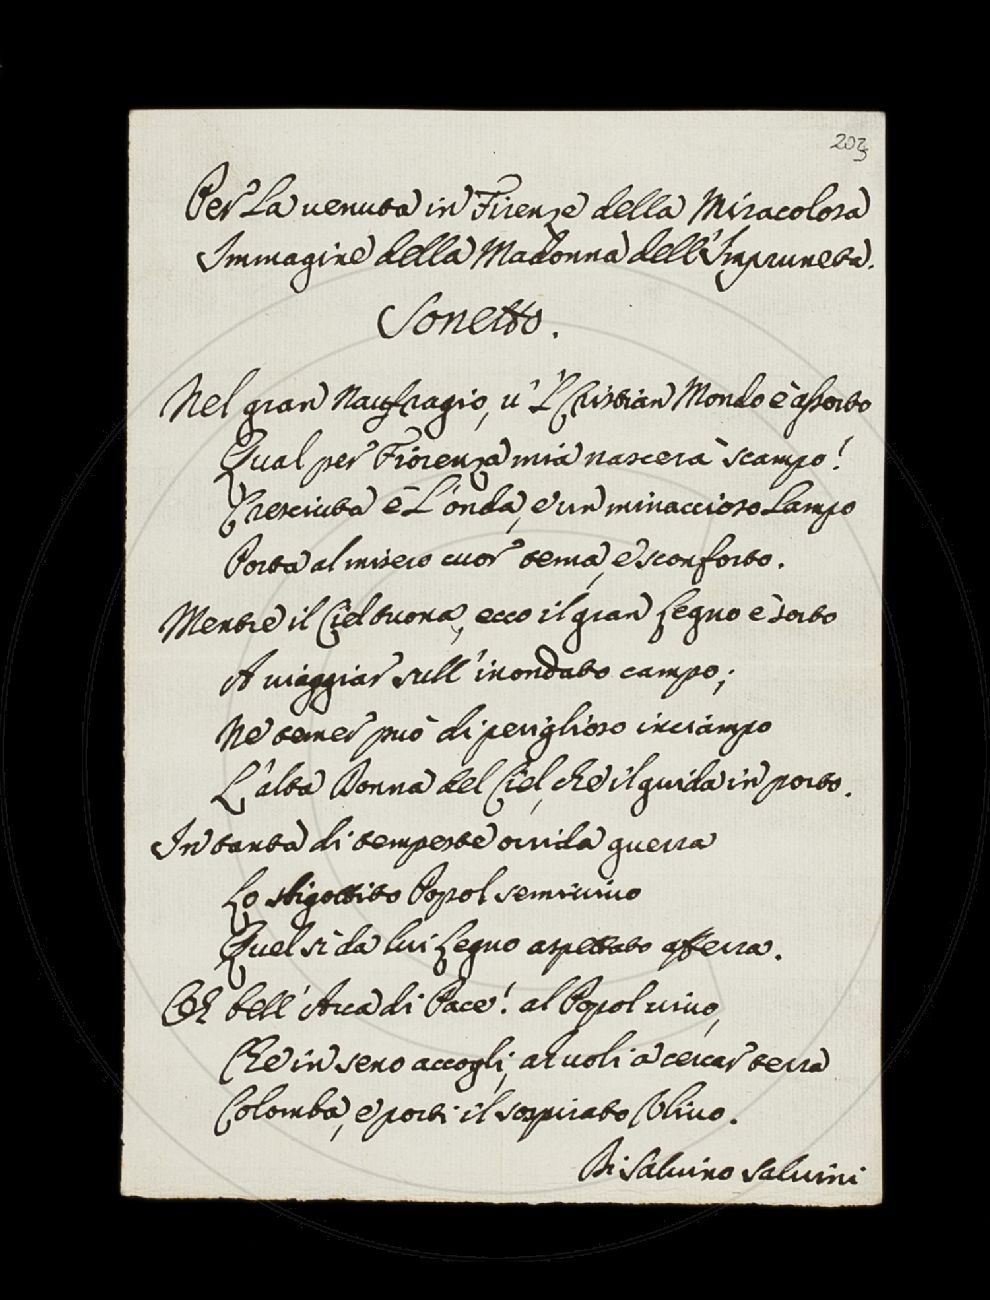 203
Per La venuta in Firenze della Miracolosa
Immagine della Madonna dell'Impruneta.
Sonetto.
Nel gran Naufragio, u' L' Cristian Mondo è assorto
Qual per Fiorenza mia nascerà scampo!
Cresciuta è L'onda, e un minaccioso Lampo
Porta al misero cuor tema, e sconforto.
Mentre il Ciel tuona, ecco il gran Legno è sorto
A viaggiar sull'inondato campo;
Ne temer può di periglioso inciampo
L'alta Donna del Ciel, che il guida in porto.
In tanta di tempeste orrida guerra
Lo sbigottito Popol semivivo
Quel sì da lui Legno aspettato afferra.
Oh bell'Arca di Pace! al Popol vivo,
Che in seno accogli, a voli a cercar terra
Colomba, e porti il sospirato Ulivo.
Di Salvino Salvini